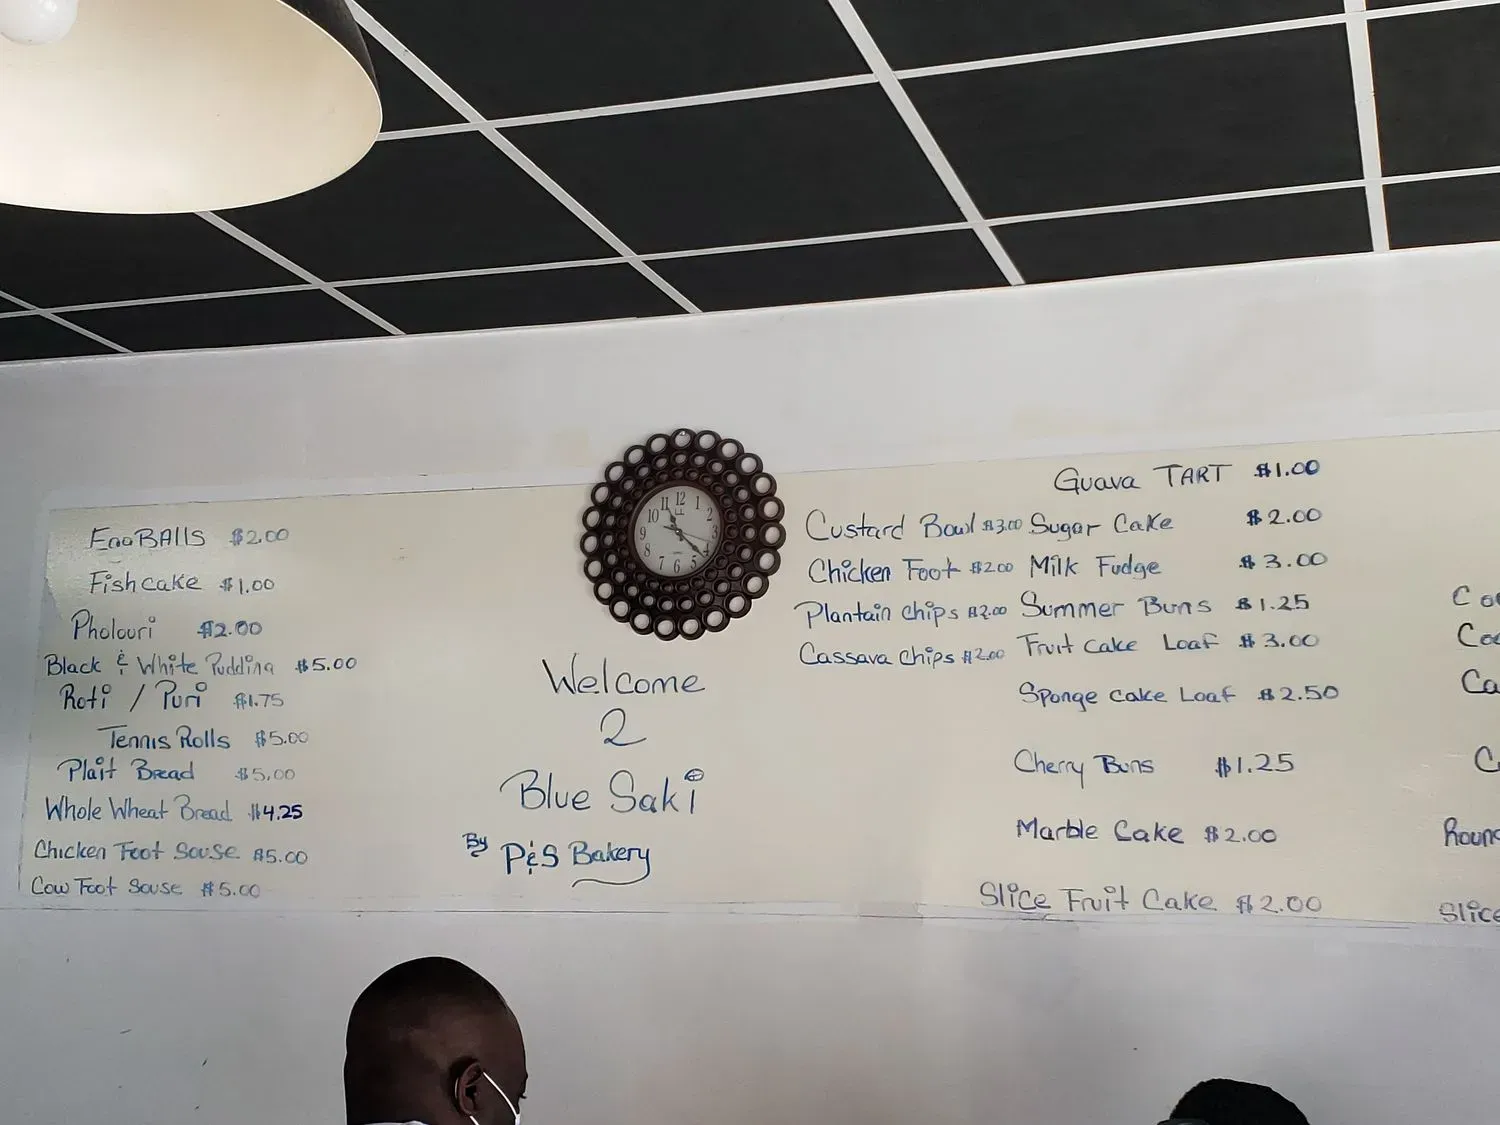 EggBALLS $2.00
Fishcake $1.00
Pholouri $2.00
Black & White Pudding $5.00
Roti / Puri $1.75
Tennis Rolls $5.00
Plait Bread $5.00
Whole Wheat Bread $4.25
Chicken Foot Souse $5.00
Cow Foot Souse $5.00
11 12 1
10 2
9 3
8 4
7 6 5
Welcome
2
Blue Saki
By P&S Bakery
Custard Bowl $3.00
Chicken Foot $2.00
Plantain Chips $2.00
Cassava Chips $2.00
Guava TART $1.00
Sugar Cake $2.00
Milk Fudge $3.00
Summer Buns $1.25
Fruit Cake Loaf $3.00
Sponge Cake Loaf $2.50
Cherry Buns $1.25
Marble Cake $2.00
Slice Fruit Cake $2.00
Ca
C
Roun
Slice